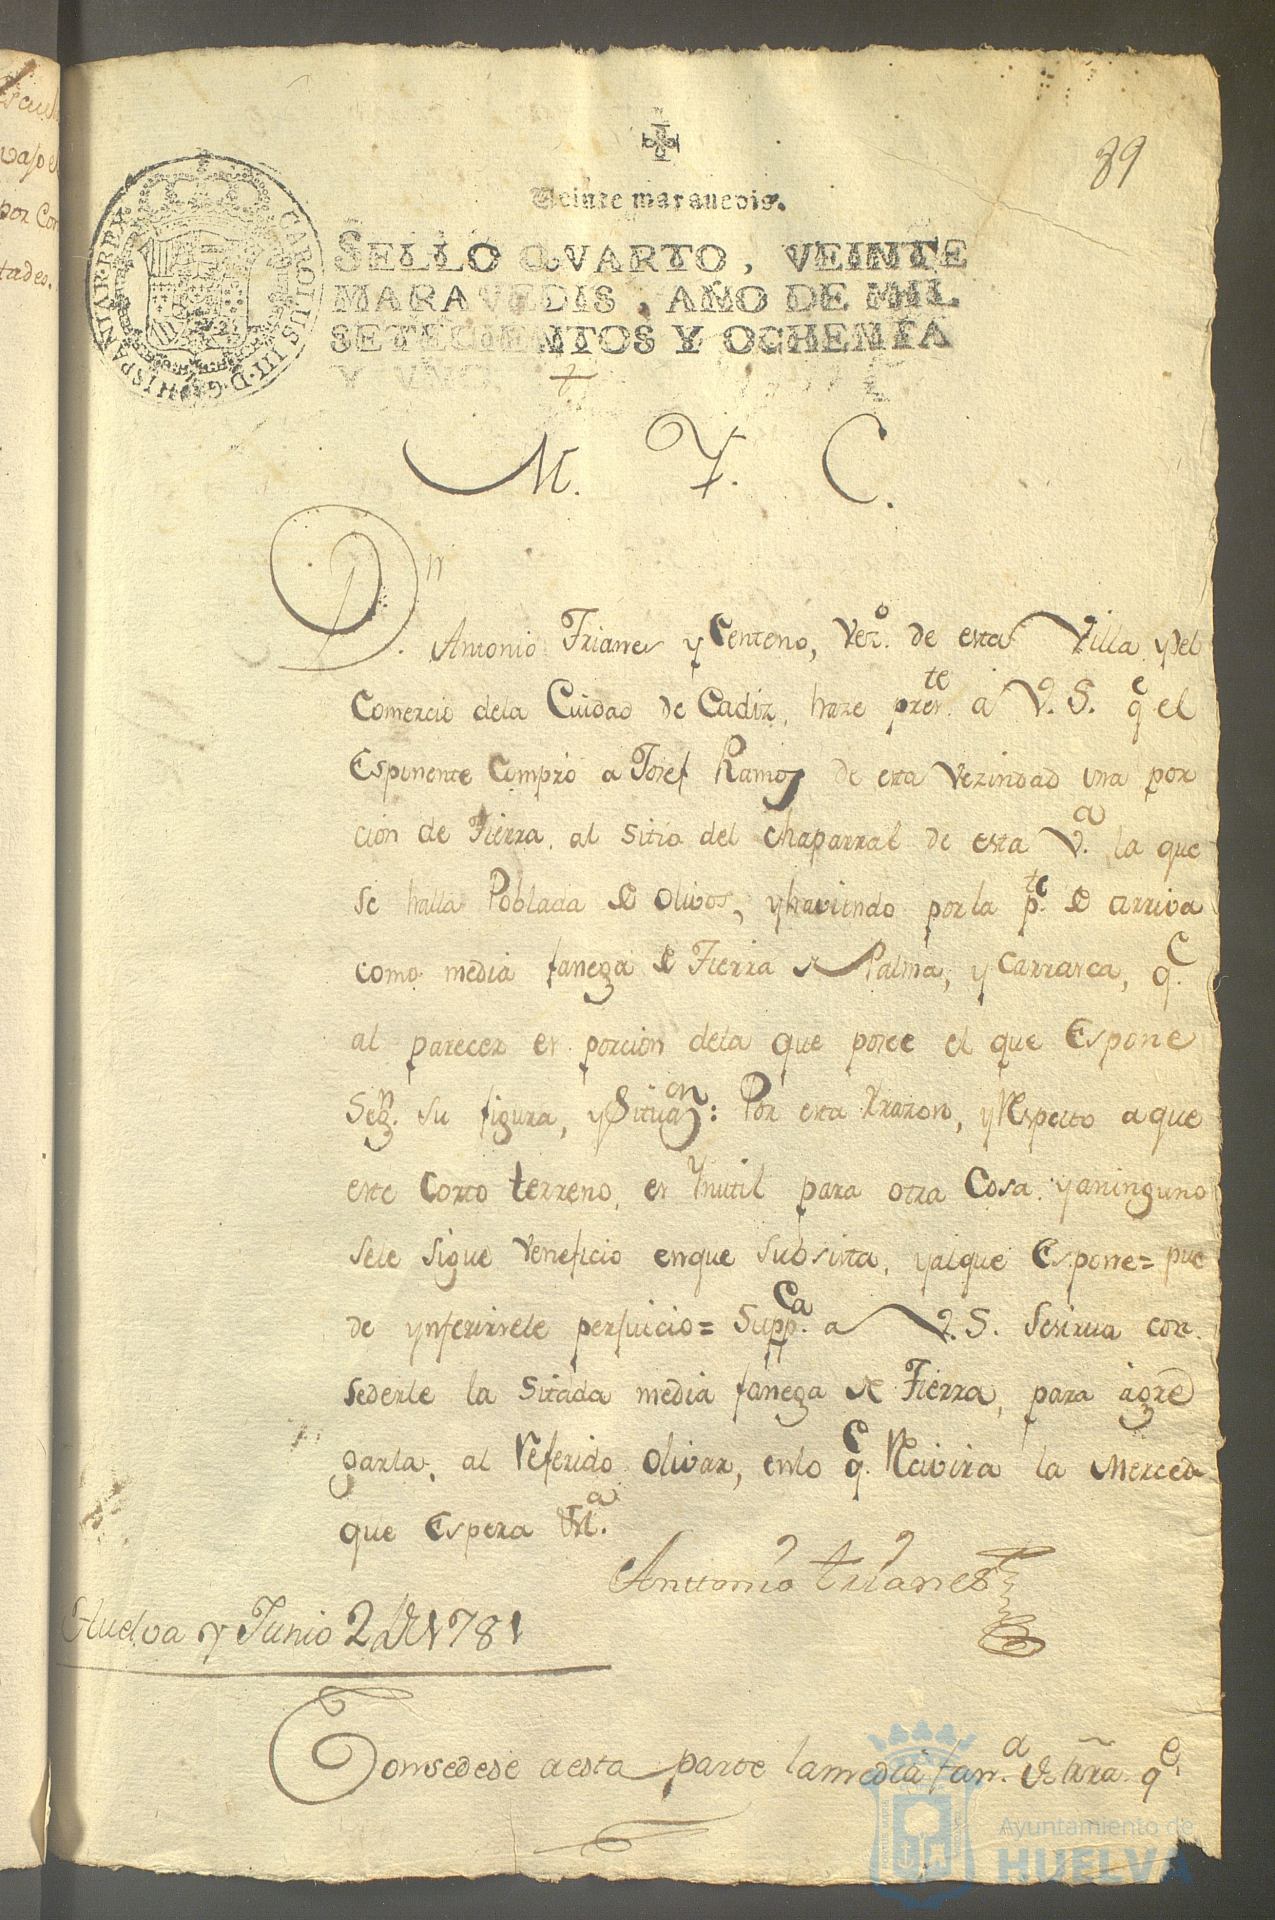 89
Veinte maravedis.
SELLO QVARTO, VEINTE
MARAVEDIS, AÑO DE MIL
SETECIENTOS Y OCHENTA
Y VNO.
CAROLUS III·D·G·HISPANIAR·REX
M. Y. C.
Dn. Antonio Trianes y Centeno, Vezo. de esta Villa y del
Comercio dela Ciudad de Cadiz, haze preste. a V. S. qe el
Esponente Compró a Josef Ramos de esta Vezindad una por
ción de Tierra, al sitio del chaparral de esta Va. la que
se halla Poblada de Olivos, y haviendo por la pte. de arriva
como media fanega de Tierra de Palma, y Carrasca, qe.
al parecer es porcion dela que posee el que Espone
Segn. su figura, y Situaon: Por esta Rrazon, y Respecto a que
este Corto terreno, es Ynutil para otra Cosa, y aninguno
sele sigue Veneficio enque subsista, yalque Espone= pue
de ynferirsele perjuicio= Suppca. a V. S. Sesirva con
sederle la Sitada media fanega de Tierra, para agre
garla, al Referido Olivar, enlo qe. Recivira la Merced
que Espera
Antonio trianes
Huelva y Junio 2 de 1781
Consedese a esta parte la media fana. de trra. qe.
Ayuntamiento de
HUELVA